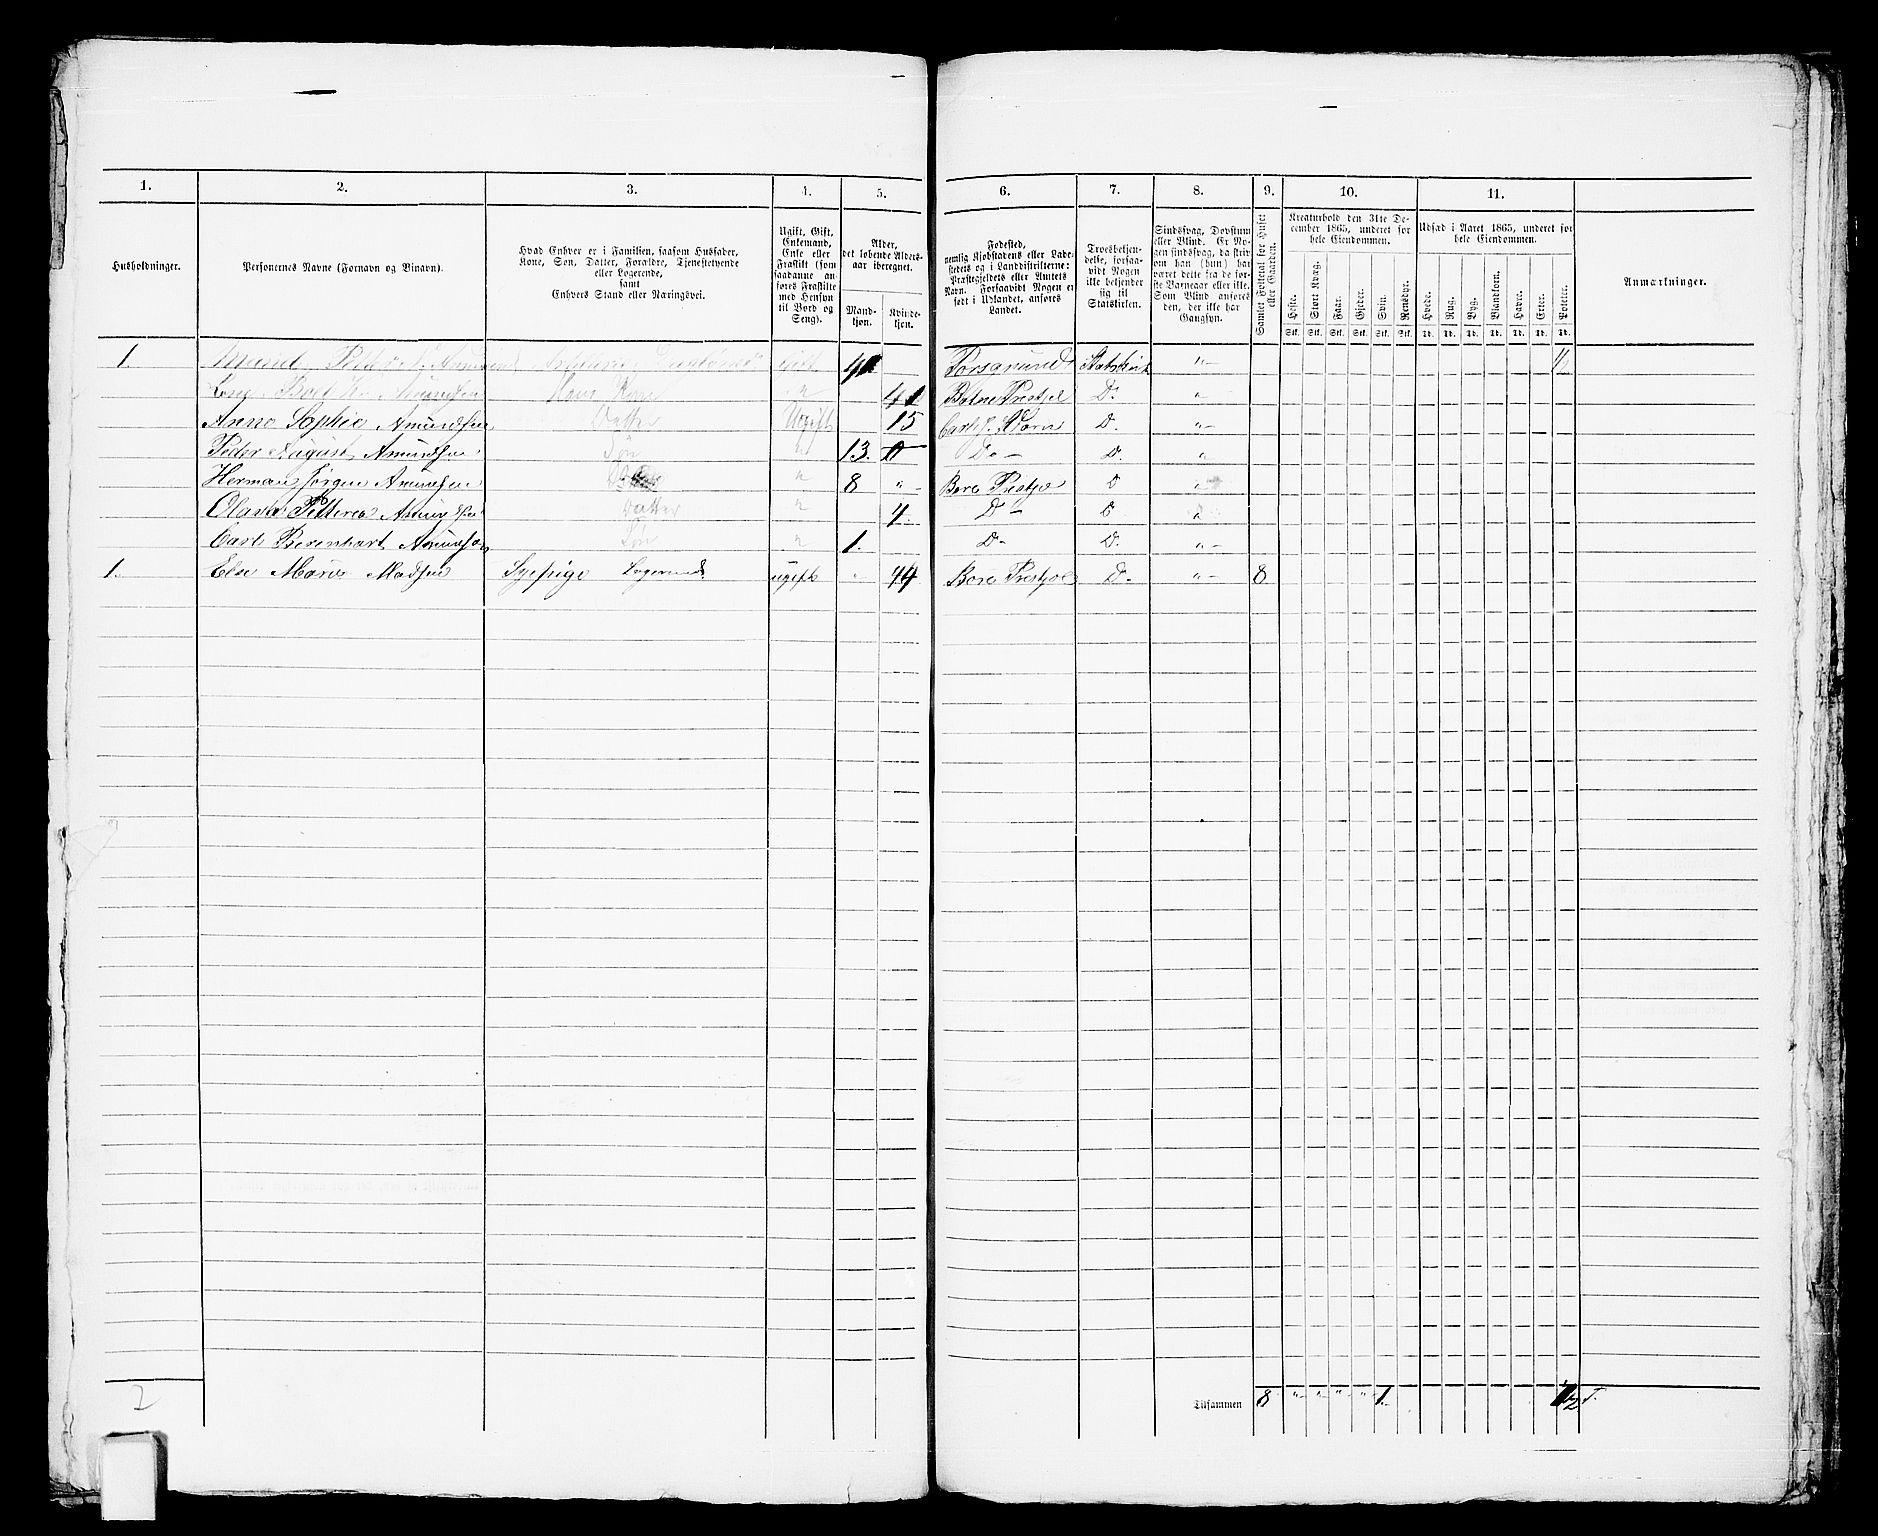 1. 2. 3. 4. 5. 6. 7. 8. 9. 10. 11.
Husholdninger.
Personernes Navne (Fornavn og Binavn).
Hvad Enhver er i Familien, saasom Husfader,
Kone, Søn, Datter, Forældre, Tjenestetyende
eller Logerende,
samt
Enhvers Stand eller Næringsvei.
Ugift, Gift,
Enkemand,
Enke eller
Fraskilt (som
saadanne an-
føres Fraskilte
med Hensyn
til Bord og
Seng).
Alder,
det løbende Alders-
aar iberegnet.
Mand-
kjøn.
Kvinde-
kjøn.
Fødested,
nemlig Kjøbstadens eller Lade-
stedets og i Landdistrikterne:
Præstegjeldets eller Amtets
Navn. Forsaavidt Nogen er
født i Udlandet, anføres
Landet.
Troesbekjen-
delse, forsaa-
vidt Nogen
ikke bekjender
sig til
Statskirken.
Sindssvag, Døvstum
eller Blind. Er No-
gen sindssvag, da skriv
om han (hun) har
været dette fra de før-
ste Barneaar eller ikke.
Som Blind anføres
den, der ikke har
Gangsyn.
Samlet Folketal for Huset
eller Gaarden.
Kreaturhold den 31te De-
cember 1865, underet for
hele Eiendommen.
Heste. Stort Kvæg. Faar. Gjeder. Svin. Rensdyr.
Stk. Stk. Stk. Stk. Stk. Stk.
Udsæd i Aaret 1865, underet for
hele Eiendommen.
Hvede. Rug. Byg. Blandkorn. Havre. Erter. Poteter.
Td. Td. Td. Td. Td. Td. Td.
Anmærkninger.
1. Gift Porsgrund
Kone 41 D. "
Anne Sophie Amundsen Datter Ugift 15 D. "-
Peder August Amundsen Søn " 13. 0 Do - D. "
Herman Jørgen Amundsen " 8 " D "
Amundsen Datter " 4. D - D "
Carl Berenhart Amundsen Søn " 1. D - D. "-
1. Else Marie Madsen Sypige Logerende ugift " 44 D. "- 8
2
Tilsammen 8 "- "- "- "- 1. 1/2 T.